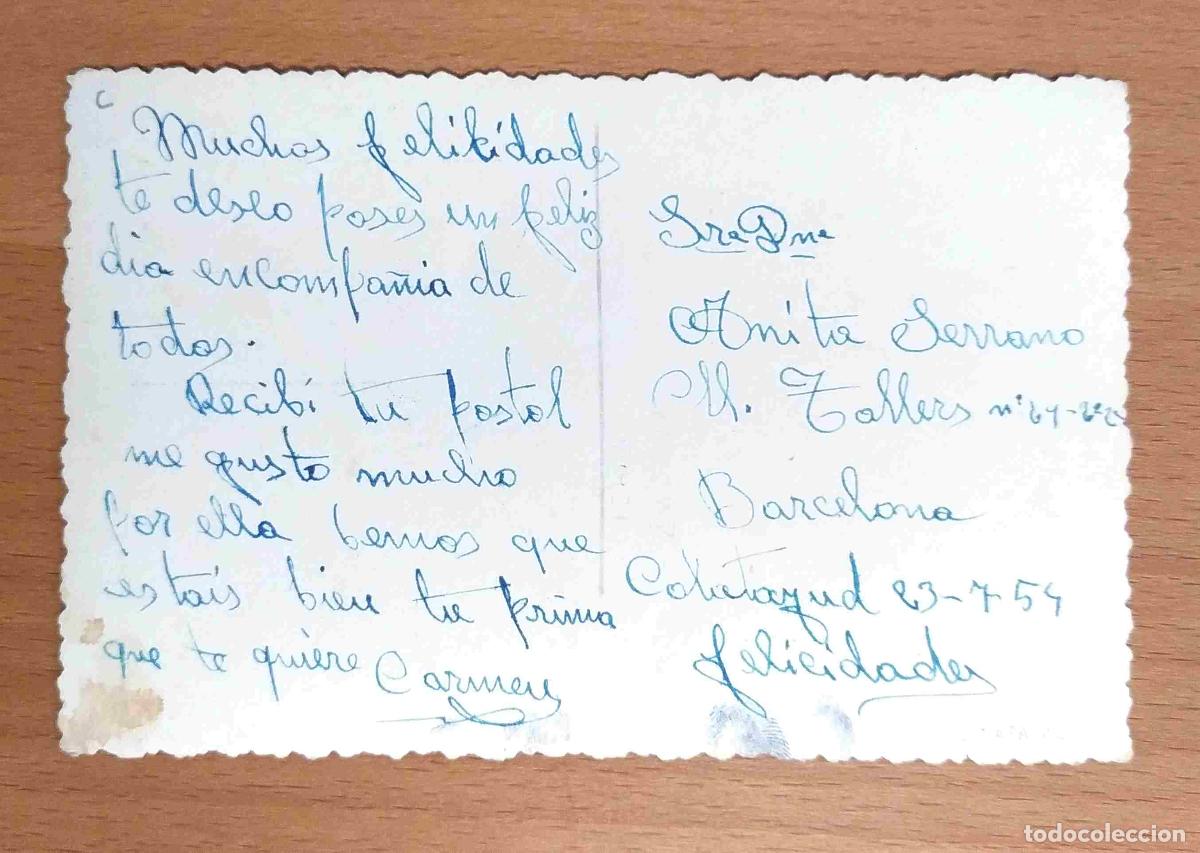 c
Muchas felikidades
te deseo pases un feliz
dia en compañia de
todos.
Recibi tu postal
me gusto mucho
por ella bemos que
estais bien tu prima
que te quiere Carmen
Sra Dna
Anita Serrano
Cll. Tallers nº
Barcelona
Calatayud 23-7-54
felicidades
todocoleccion